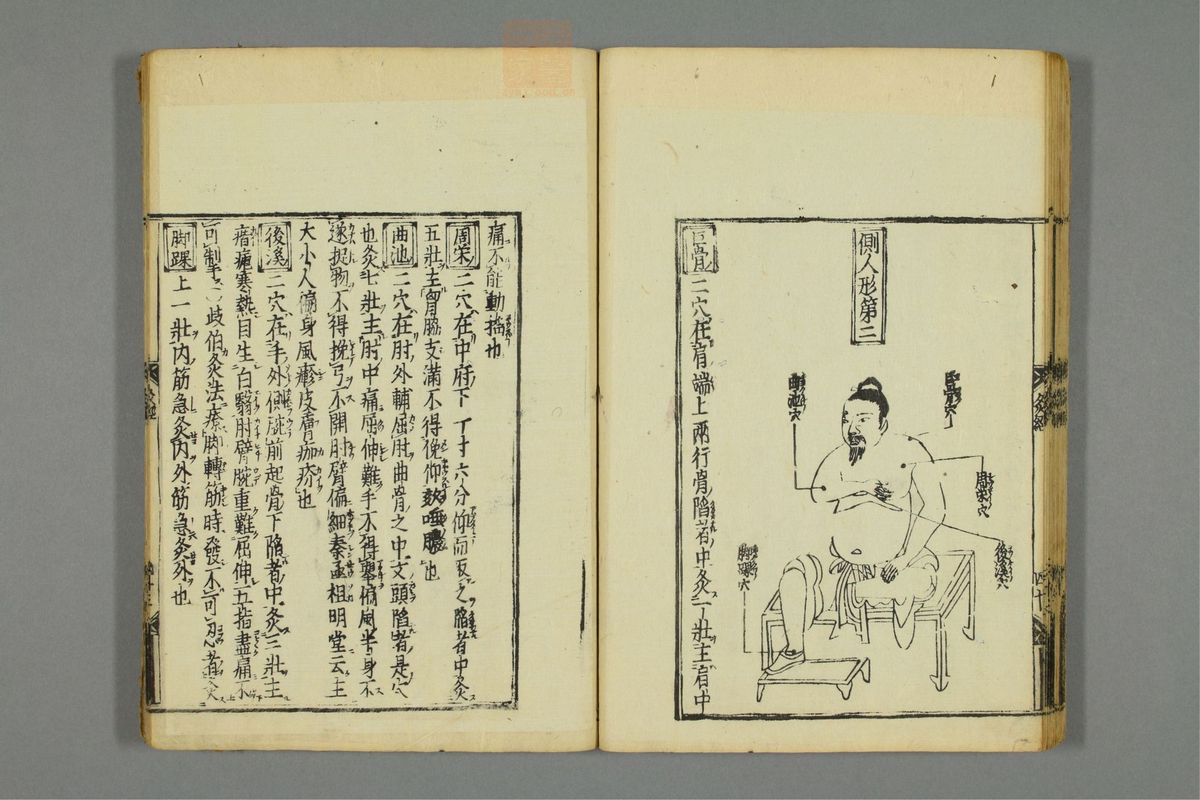 側人形第三
巨骨穴
曲池穴
周榮穴
後溪穴
脚踝穴
巨骨二穴在肩端上兩行骨陷者中灸一壯主肩中
痛不能動搖也
周荣二穴在中府下一寸六分仰而取之陷者中灸
五壯主胷脇支滿不得俛仰欬唾膿也
曲池二穴在肘外輔屈肘曲骨之中文頭陷者是穴
也灸七壯主肘中痛屈伸難手不得擧偏風半身不
遂捉物不得挽弓不開肘臂偏細秦丞相明堂云主
大小人徧身風癮皮膚痂疥也
後溪二穴在手外側腕前起骨下陷者中灸三壯主
瘖瘧寒熱目生白翳肘臂腕重難屈伸五指盡痛不
可制手〇岐伯灸法療脚轉筋時發不可忍者灸
脚踝上一壯内筋急灸内外筋急灸外也
灸經
四十